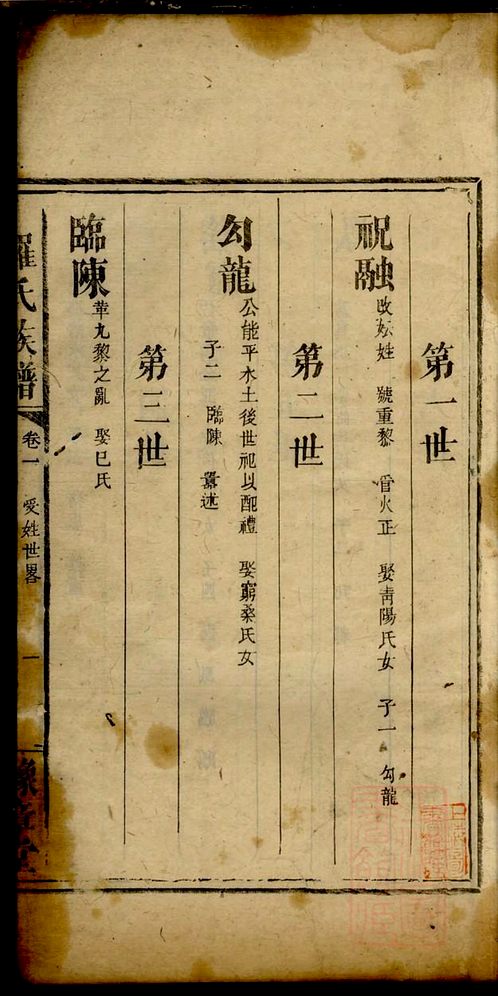 第一世
祝融 改妘姓 號重黎 官火正 娶靑陽氏女 子一 勾龍
第二世
勾龍 公能平水土後世祀以配禮 娶窮桑氏女
子二 臨陳 囂述
第三世
臨陳 革九黎之亂 娶巳氏
羅氏族譜 卷一 受姓世畧 一 堂